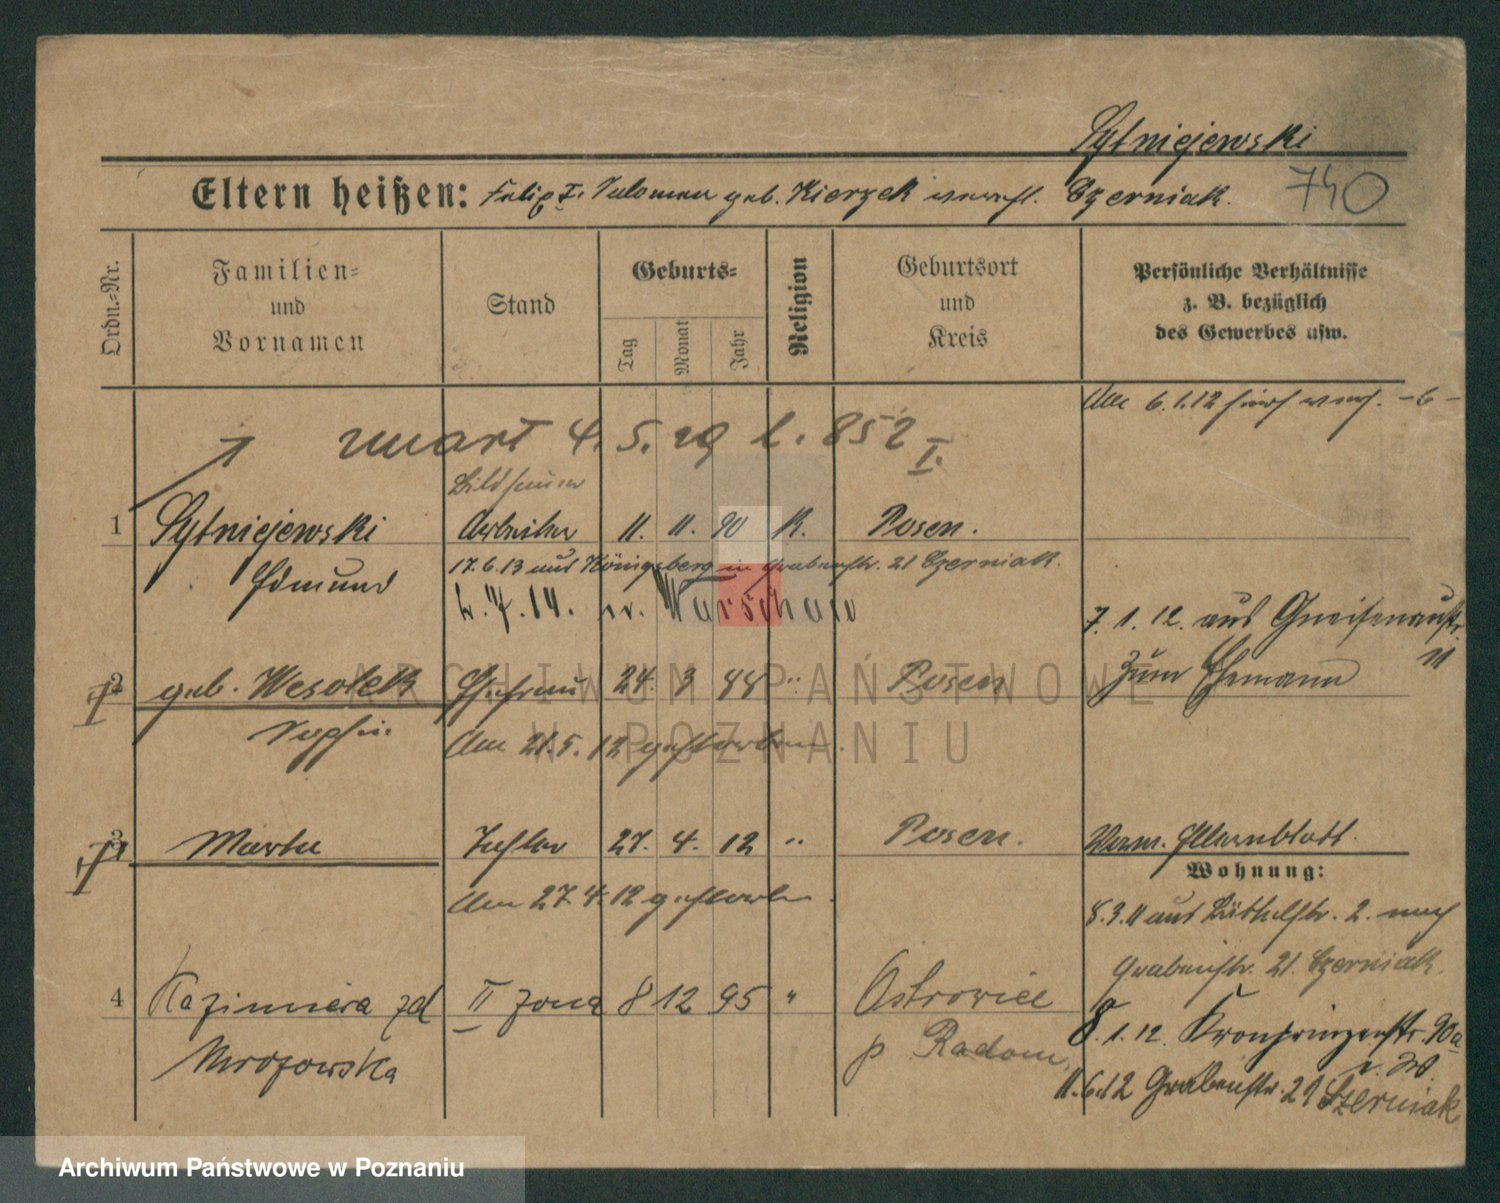 Sytniejewski
Eltern heißen: Filip u. Salomea geb. Kierzek verw. Czerniak.
740
Ordn.=Nr.
Familien=
und
Vornamen
Stand
Geburts=
Tag
Monat
Jahr
Religion
Geburtsort
und
Kreis
Persönliche Verhältnisse
z. B. bezüglich
des Gewerbes usw.
Am 6.1.12 verh. -6-
umart 4.5.29 l. 852
I.
Bildhauer
1 Sytniejewski Arbeiter 11. 11. 90 K. Posen.
Edmund
17.6.13 aus Königsberg in Grabenstr. 21 Czerniak.
4.7.14. n. Warschau
7.1.12. aus Gneisenaustr.
zum Ehemann
2 geb. Wesołek Ehefrau 24. 3 88 " Posen
Sophie
Am 21.5.12 gestorben.
3 Marta Tochter 27. 4. 12 " Posen.
Am 27.4.12 gestorben.
Verm. Elternblatt.
Wohnung:
8.3.11 aus 2. nach
Grabenstr. 21. Czerniak.
4 Kazimiera zd II żona 8 12 95 " Ostrowiec
Mrozowska
p Radom,
8.1.12. Kronprinzenstr. 90a
11.6.12 Grabenstr. 21 Czerniak
ARCHIWUM PAŃSTWOWE
W POZNANIU
Archiwum Państwowe w Poznaniu